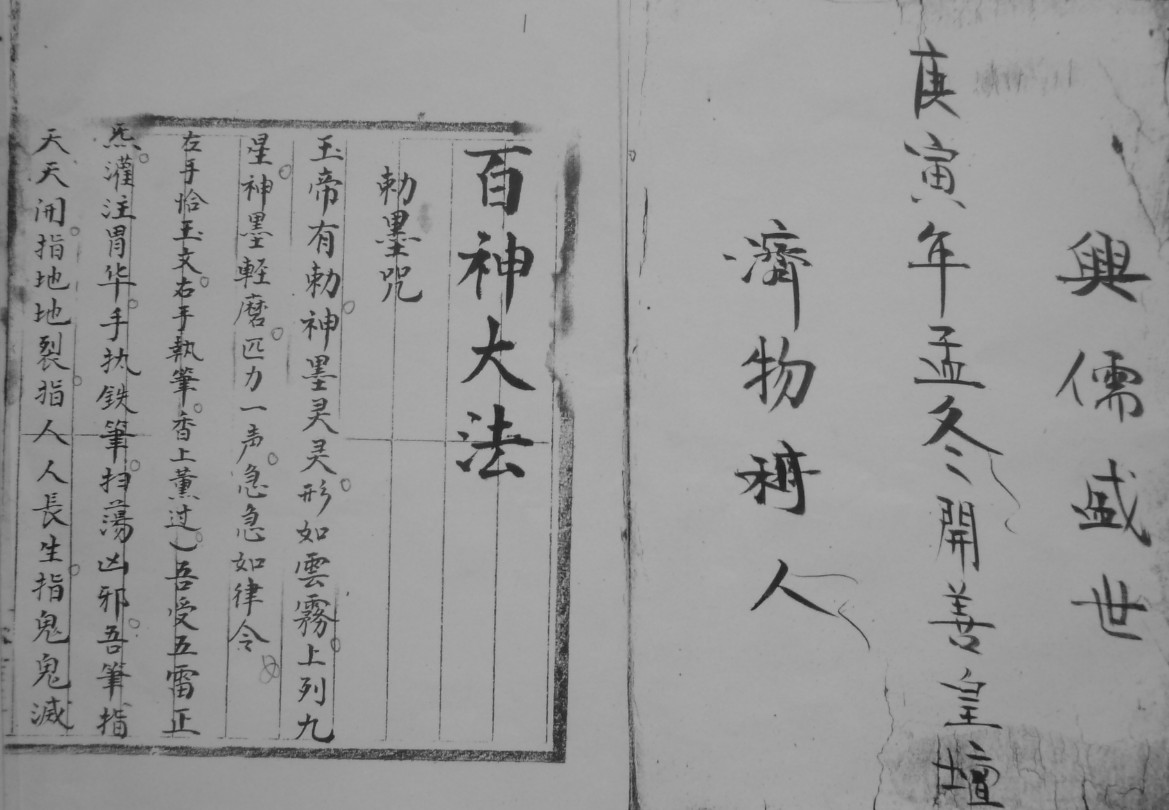 興儒盛世
庚寅年孟冬開善皇壇
濟物人
百神大法
勅墨咒
玉帝有勅。神墨灵灵。形如雲霧。上列九
星。神墨輕磨。匹力一声。急急如律令
右手恰玉文。右手執筆。香上薰过）。吾受五雷正
炁。灌注胃华。手执鉄筆。扫蕩凶邪。吾筆指
天天開。指地地裂。指人人長生。指鬼鬼滅